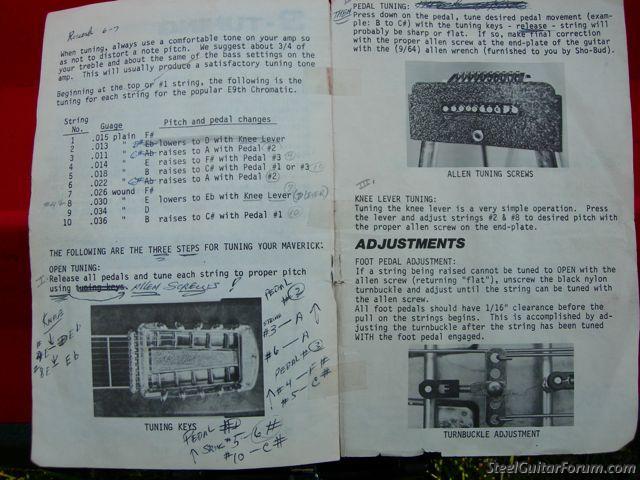 When tuning, always use a comfortable tone on your amp so
as not to distort a note pitch. We suggest about 3/4 of
your treble and about the same of the bass settings on the
amp. This will usually produce a satisfactory tuning tone
Beginning at the top or #1 string, the following is the
tuning for each string for the popular E9th Chromatic.
String No. Guage Pitch and pedal changes
1 .015 plain F#
2 .013 " Eb lowers to D with Knee Lever
3 .011 " Ab raises to A with Pedal #2
4 .014 " E raises to F# with Pedal #3
5 .018 " B raises to C# with Pedal #1 or #3
6 .022 " Ab raises to A with Pedal #2
7 .026 wound F#
8 .030 " E lowers to Eb with Knee Lever
9 .034 " D
10 .036 " B raises to C# with Pedal #1
THE FOLLOWING ARE THE THREE STEPS FOR TUNING YOUR MAVERICK:
I.
OPEN TUNING:
Release all pedals and tune each string to proper pitch
using tuning keys. ALLEN SCREWS
KNEE
PEDAL
#2
STRING
#3 — A
#6 — A
PEDAL #3
#4 — F#
#5 — C#
TUNING KEYS
PEDAL #1
#5
#10 — C#
THEN
PEDAL TUNING:
Press down on the pedal, tune desired pedal movement (exam-
ple: B to C#) with the tuning keys - release - string will
probably be sharp or flat. If so, make final correction
with the proper allen screw at the end-plate of the guitar
with the (9/64) allen wrench (furnished to you by Sho-Bud).
ALLEN TUNING SCREWS
III.
KNEE LEVER TUNING:
Tuning the knee lever is a very simple operation. Press
the lever and adjust strings #2 & #8 to desired pitch with
the proper allen screw on the end-plate.
ADJUSTMENTS
FOOT PEDAL ADJUSTMENT:
If a string being raised cannot be tuned to OPEN with the
allen screw (returning "flat"), unscrew the black nylon
turnbuckle and adjust until the string can be tuned with
the allen screw.
All foot pedals should have 1/16" clearance before the
pull on the strings begins. This is accomplished by ad-
justing the turnbuckle after the string has been tuned
WITH the foot pedal engaged.
TURNBUCKLE ADJUSTMENT
SteelGuitarForum.com